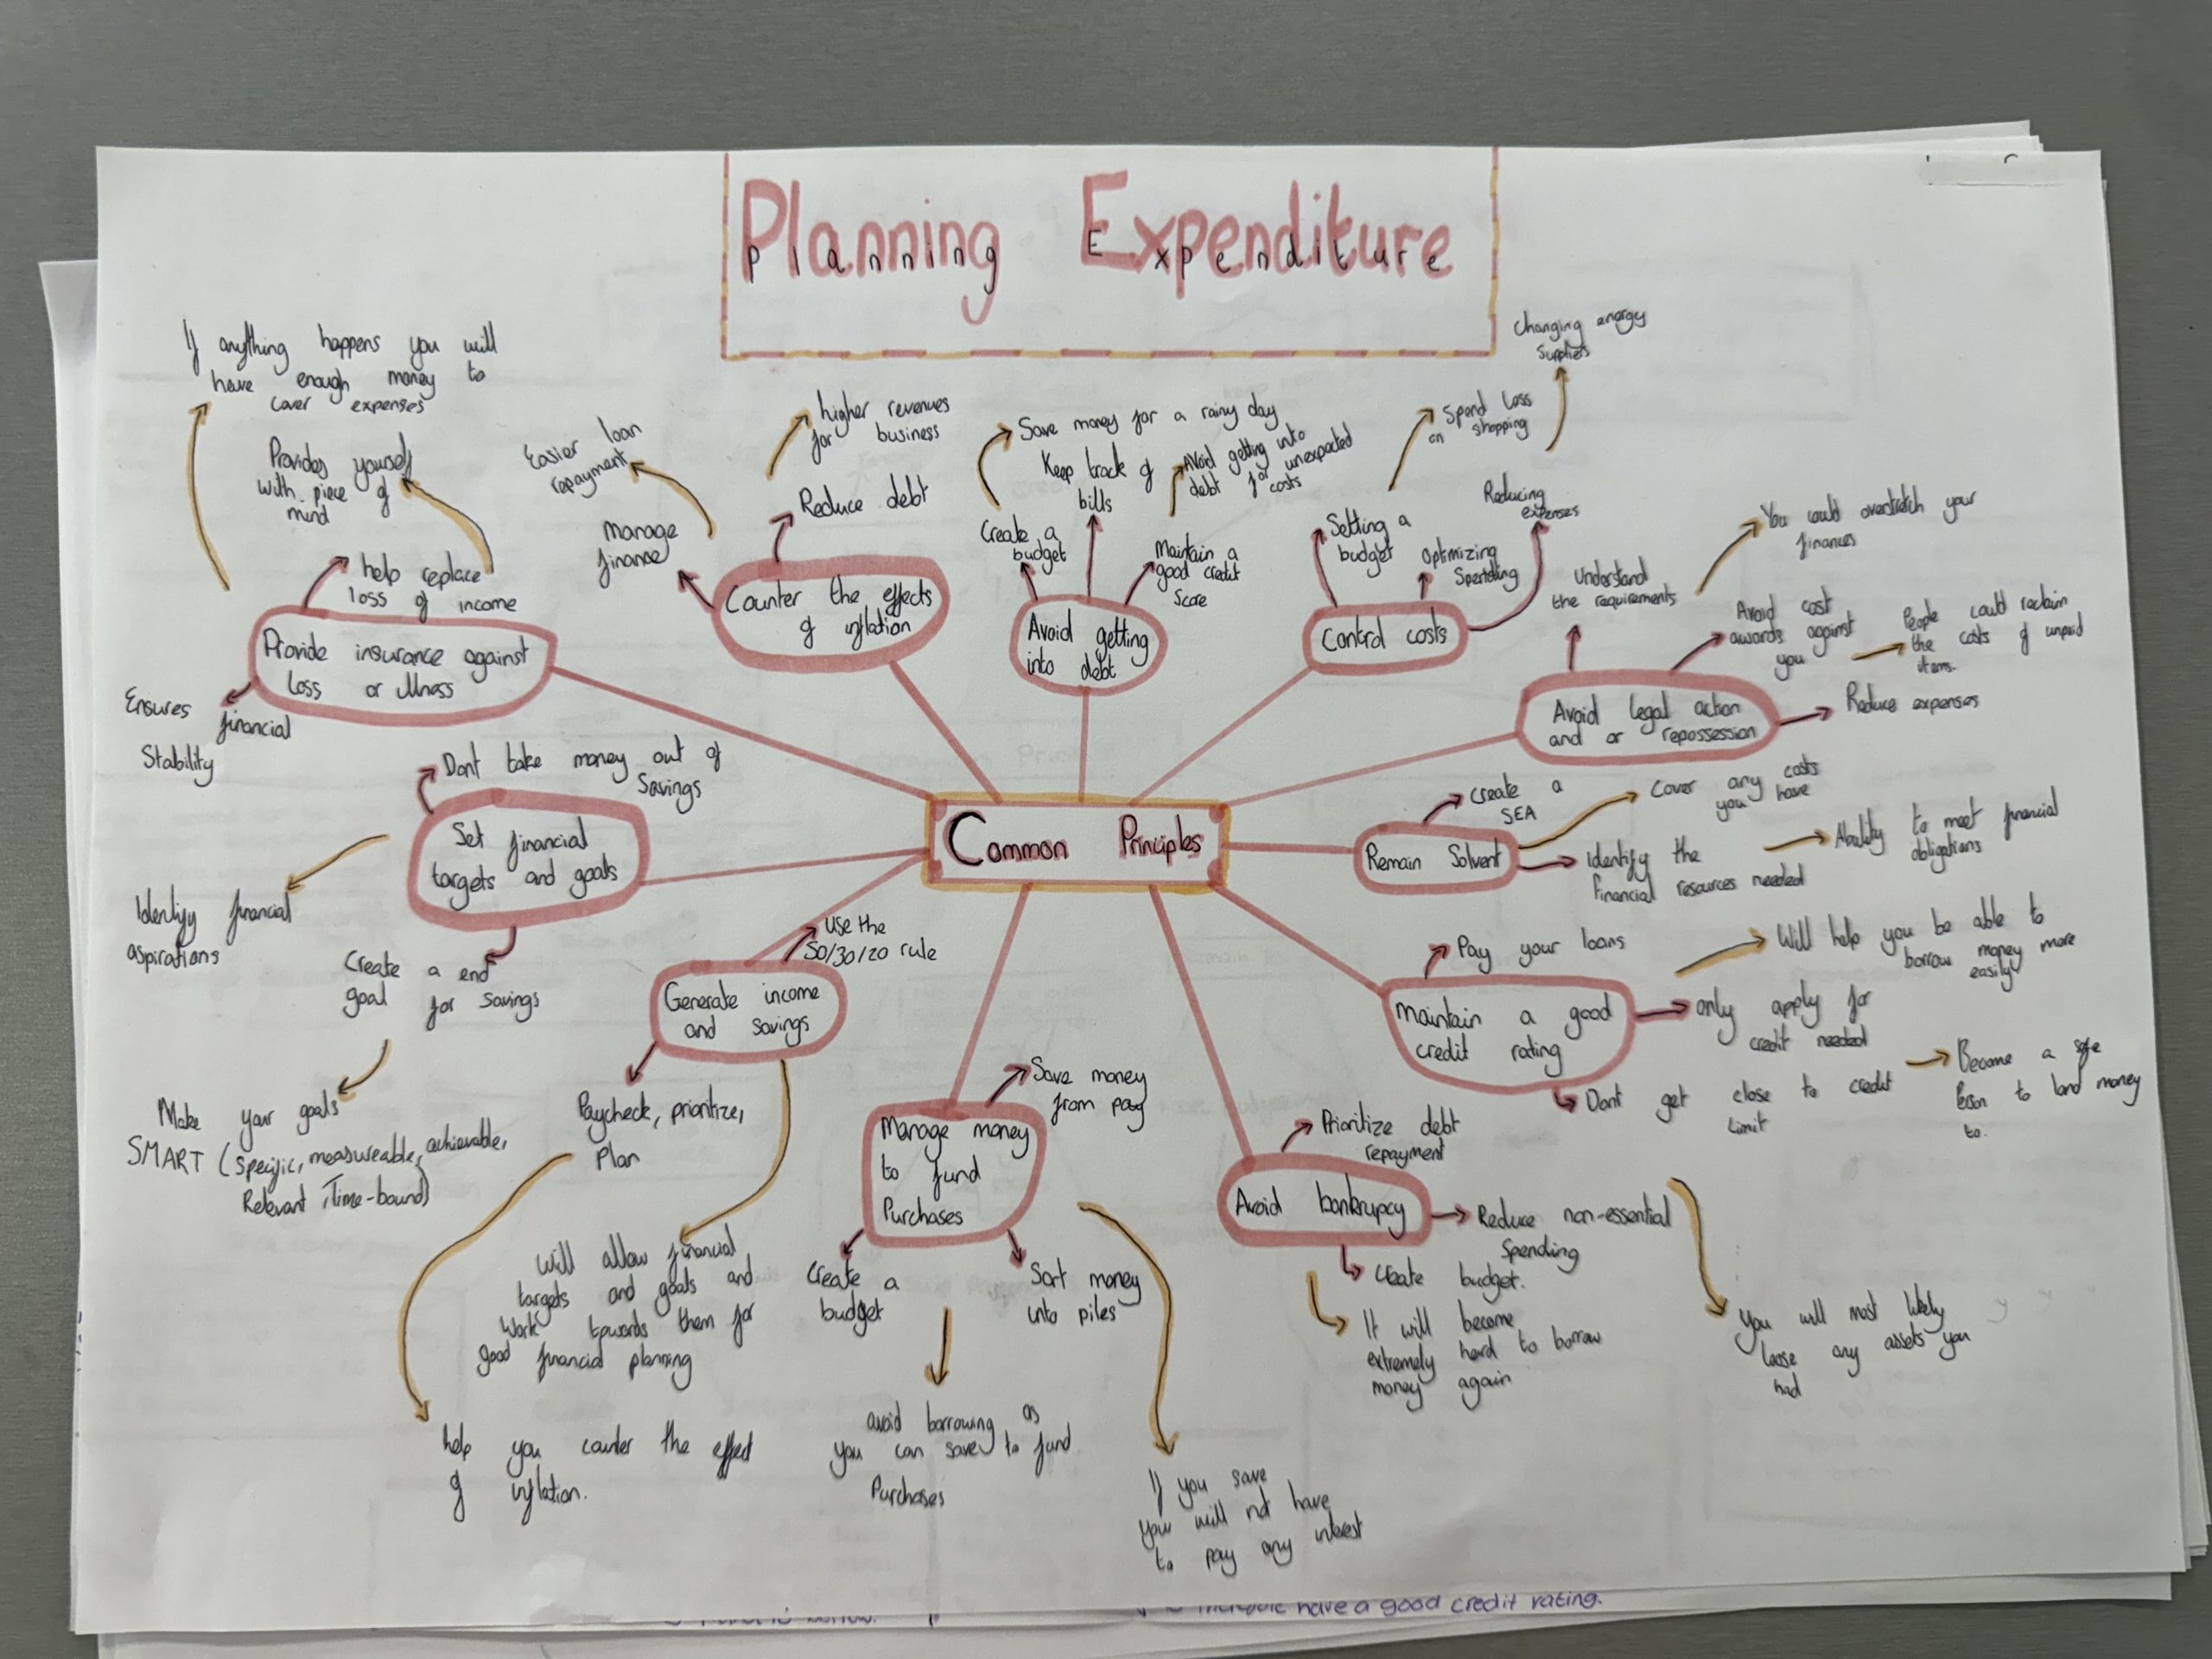 Planning Expenditure
If anything happens you will
have enough money to
cover expenses
Provides yourself
with piece of
mind
help replace
loss of income
Provide insurance against
loss or illness
Ensures
financial
Stability
Easier loan
repayment
Manage
finance
higher revenues
for business
Reduce debt
Counter the effects
of inflation
Save money for a rainy day
Keep track of
bills
Avoid getting into
debt for unexpected
costs
Create a
budget
Maintain a
good credit
Score
Avoid getting
into debt
Changing energy
suppliers
Spend less
on shopping
Reducing
expenses
Setting a
budget
Optimizing
Spending
Control costs
You could overstretch your
finances
Understand
the requirements
Avoid cost
awards against
you
People could reclaim
the costs of unpaid
items.
Avoid legal action
and or repossession
Reduce expenses
Common Principles
Create a
SEA
Cover any costs
you have
Remain Solvent
Identify the
Financial resources needed
Abulity to meet financial
obligations
Dont take money out of
Savings
Set financial
targets and goals
Identify financial
aspirations
Create a end
goal for savings
Make your goals
SMART (Specific, measureable, achievable,
Relevant, Time-bound)
use the
50/30/20 rule
Generate income
and savings
Paycheck, prioritize,
Plan
Will allow financial
targets and goals and
work towards them for
good financial planning
help you counter the effect
of inflation.
Save money
from pay
Manage money
to fund
Purchases
Create a
budget
Sort money
into piles
avoid borrowing as
you can save to fund
Purchases
If you save
you will not have
to pay any interest
Pay your loans
Will help you be able to
borrow money more
easily
Maintain a good
credit rating
only apply for
credit needed
Dont get close to credit
limit
Become a safe
Person to lend money
to.
Prioritize debt
repayment
Avoid bankrupcy
Reduce non-essential
Spending
Create budget.
It will become
extremely hard to borrow
money again
You will most likely
loose any assets you
had
have a good credit rating.